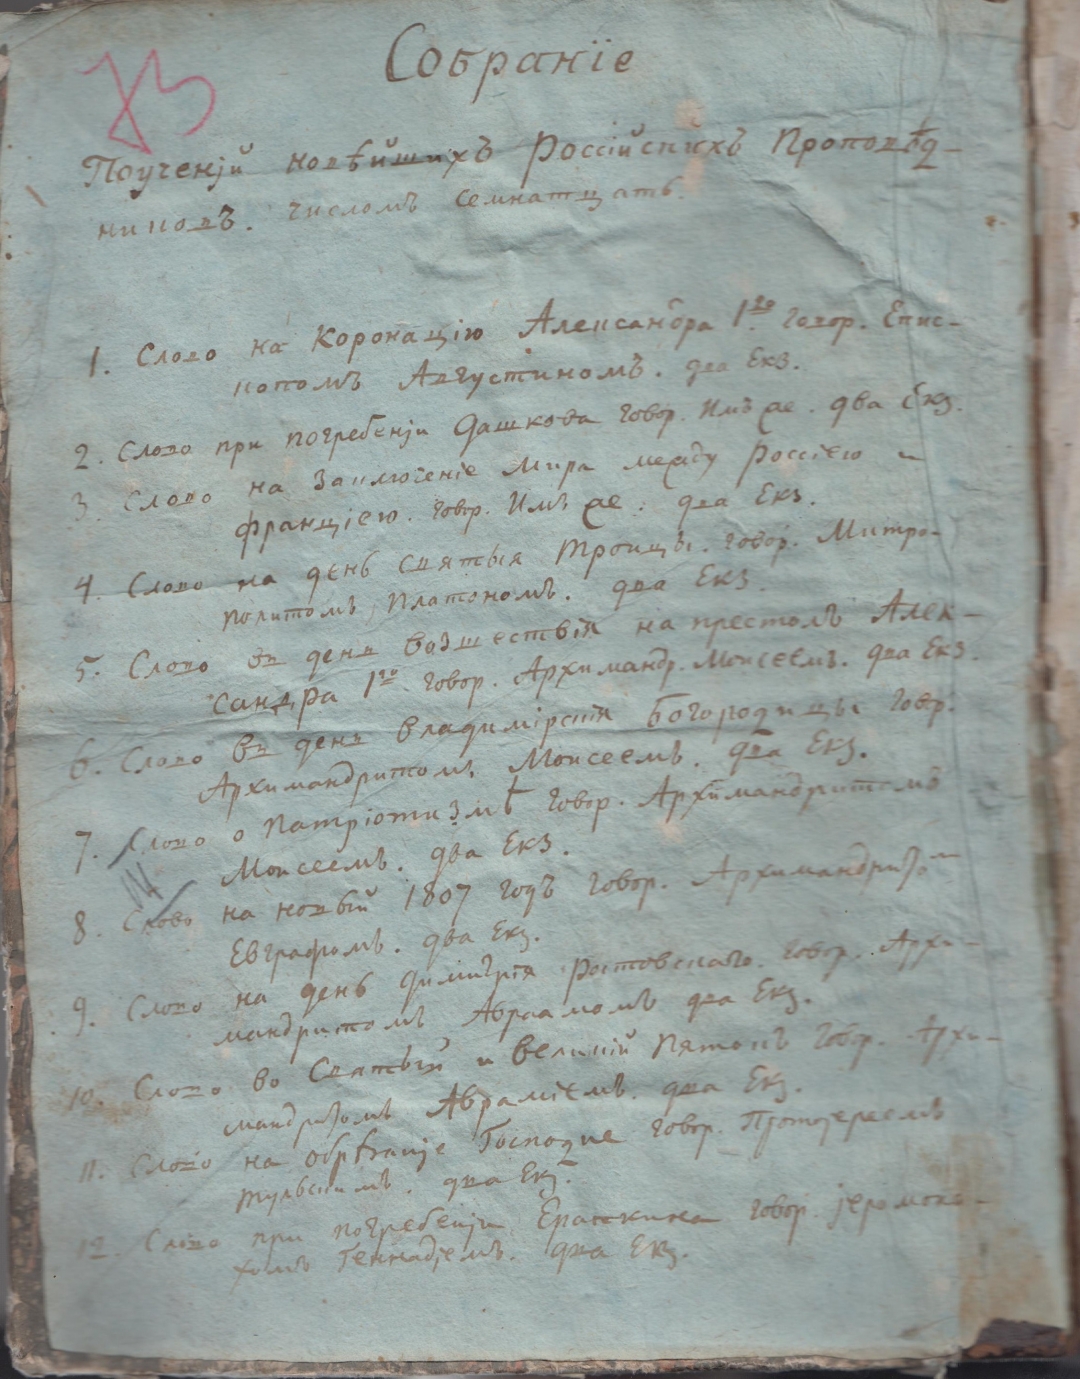 Собранїе
Поученїй новѣйшихъ Россїйскихъ Проповѣд-
никовъ. числомъ семнатцать.
1. Слово на Коронацїю Александра 1го. говор. Епис-
копомъ Августиномъ. два Екз.
2. Слово при погребенїи Дашкова говор. Имъ же. два Екз.
3. Слово на Заключенїе Мира между Россїею и
францїею. говор. Имъ же. два Екз.
4. Слово на день святыя Троицы. говор. Митро-
политомъ Платономъ. два Екз.
5. Слово въ день возшествїя на престолъ Алек-
сандра 1го. говор. Архимандр. Моисеемъ. два Екз.
6. Слово въ день владимїрскїя Богородицы говор.
Архимандритомъ Моисеемъ. два Екз.
7. Слово о Патрїотизмѣ говор. Архимандритомъ
Моисеемъ. два Екз.
8. Слово на новый 1807 годъ говор. Архимандрито-
Евграфомъ. два Екз.
9. Слово на день Димитрїя Ростовскаго. говор. Архи-
мандритомъ Авраамомъ два Екз.
10. Слово во Святый и великїй Пятокъ говор. Архи-
мандритомъ Аврамїемъ. два Екз.
11. Слово на обрѣзанїе Господне говор. Протоїереемъ
тульскимъ. два Екз.
12. Слово при погребенїи Ерапкина говор. їеромона-
хомъ Геннадїемъ. два Екз.